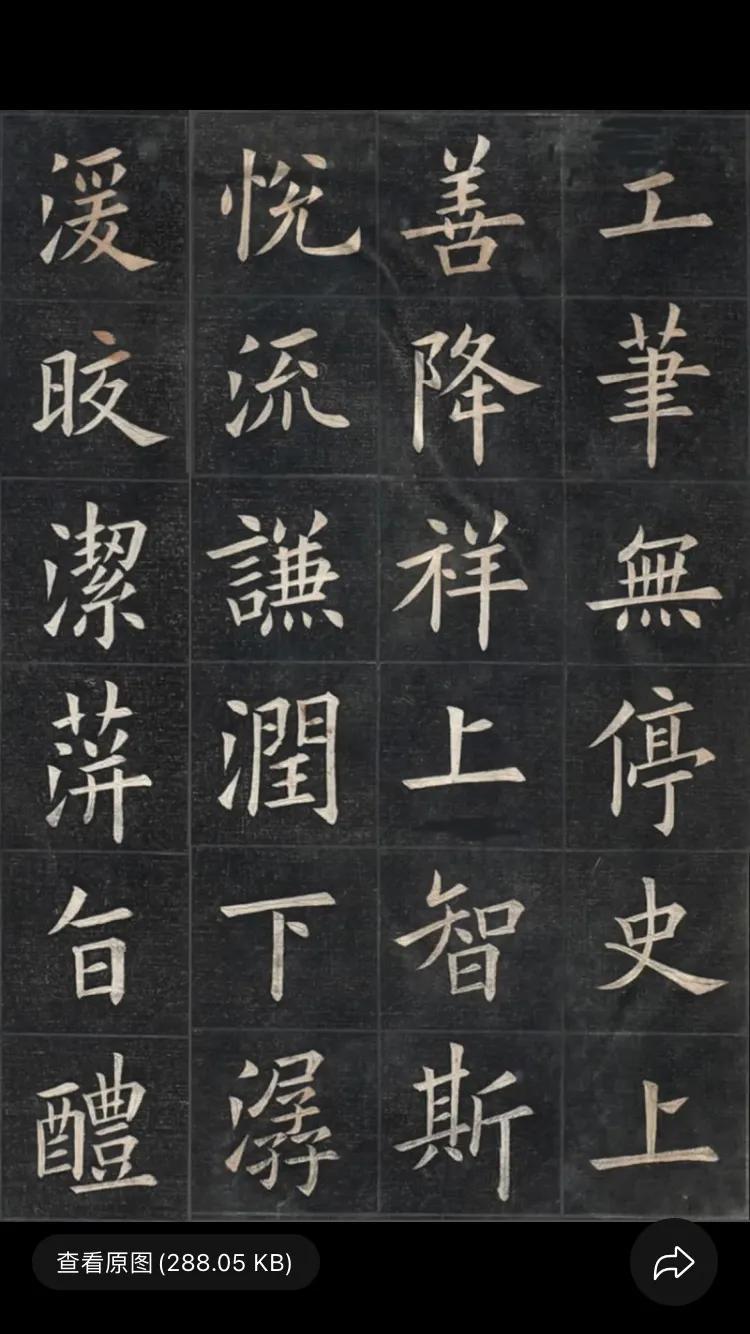 工筆無停史上
善降祥上智斯
悅流謙潤下潺
湲皎潔蓱旨醴
查看原图(288.05 KB)